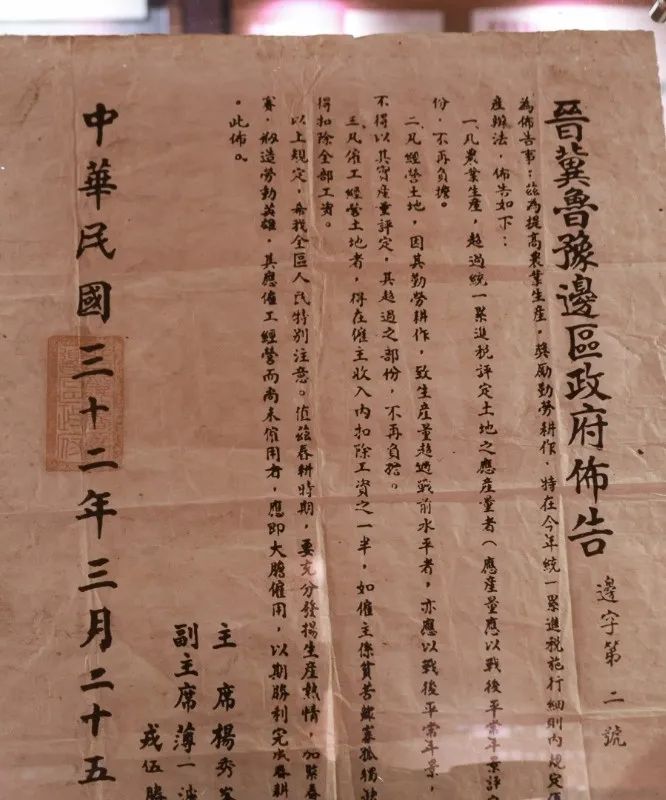 晉冀魯豫邊區政府佈告
邊字第二號
為佈告事：茲為提高農業生產，獎勵勤勞耕作，特在今年統一累進稅施行細則內規定
產辦法，佈告如下：
一、凡農業生產，超過統一累進稅評定土地之應產量者（應產量應以戰後平常年景評
份，不再負擔。
二、凡經營土地，因其勤勞耕作，致生產量超過戰前水平者，亦應以戰後平常年景，
不得以其實產量評定，其超過之部份，不再負擔。
三、凡僱工經營土地者，得在僱主收入內扣除工資之一半，如僱主係貧苦鰥寡孤獨
得扣除全部工資。
以上規定，希我全區人民特別注意。值茲春耕時期，要充分發揚生產熱情，加緊春
賽，創造勞動英雄，其應僱工經營而尚未僱用者，應即大膽僱用，以期勝利完成春耕
。此佈。
主席楊秀
副主席薄一波
戎伍勝
中華民國三十二年三月二十五